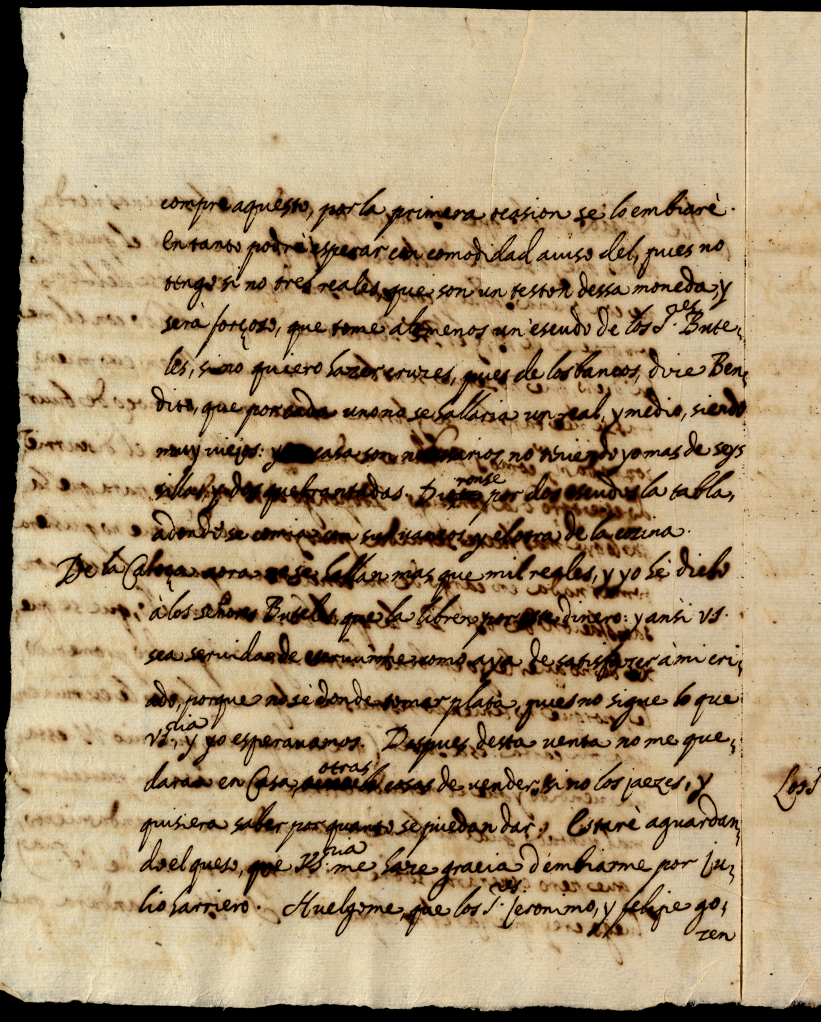 compre aquesto, por la primera ocasion se lo embiarè.
En tanto podrè esperar con comodidad auiso del, pues no
tengo si no tres reales, que son un teston dessa moneda, y
serà forçoso, que tome alomenos un escudo de los S.res Bute-
les, si no quiero hazer cruzes, pues de los bancos, dize Ben-
dito, que por cada uno no se hallaria un real, y medio, siendo
muy viejos: y casa son no teniendo yo mas de seys
sillas, y dos quebrantadas. por dos escudos la tabla,
adonde se comia con sus y el otra de la cozina.
De la Caloça aora no se hallan mas que mil reales, y yo hè dicho
à los señores Buteles, que la libren por este dinero: y ansi VS.
sea seruida de escriuirme como aya de satisfazer à mi cri-
ado, porque no sè donde tomar plata, pues no sigue lo que
VS.ria, y yo esperauamos. Despues desta venta no me que-
daran en Casa otras cosas de vender, si no los jaezes, y
quisiera saber por quanto se puedan dar. Estarè aguardan-
do el queso, que VS.ria me haze gracia d'embiarme por Ju-
lio harriero. Huelgome, que los S.res Jeronimo, y Felipe go-
zen
Los S